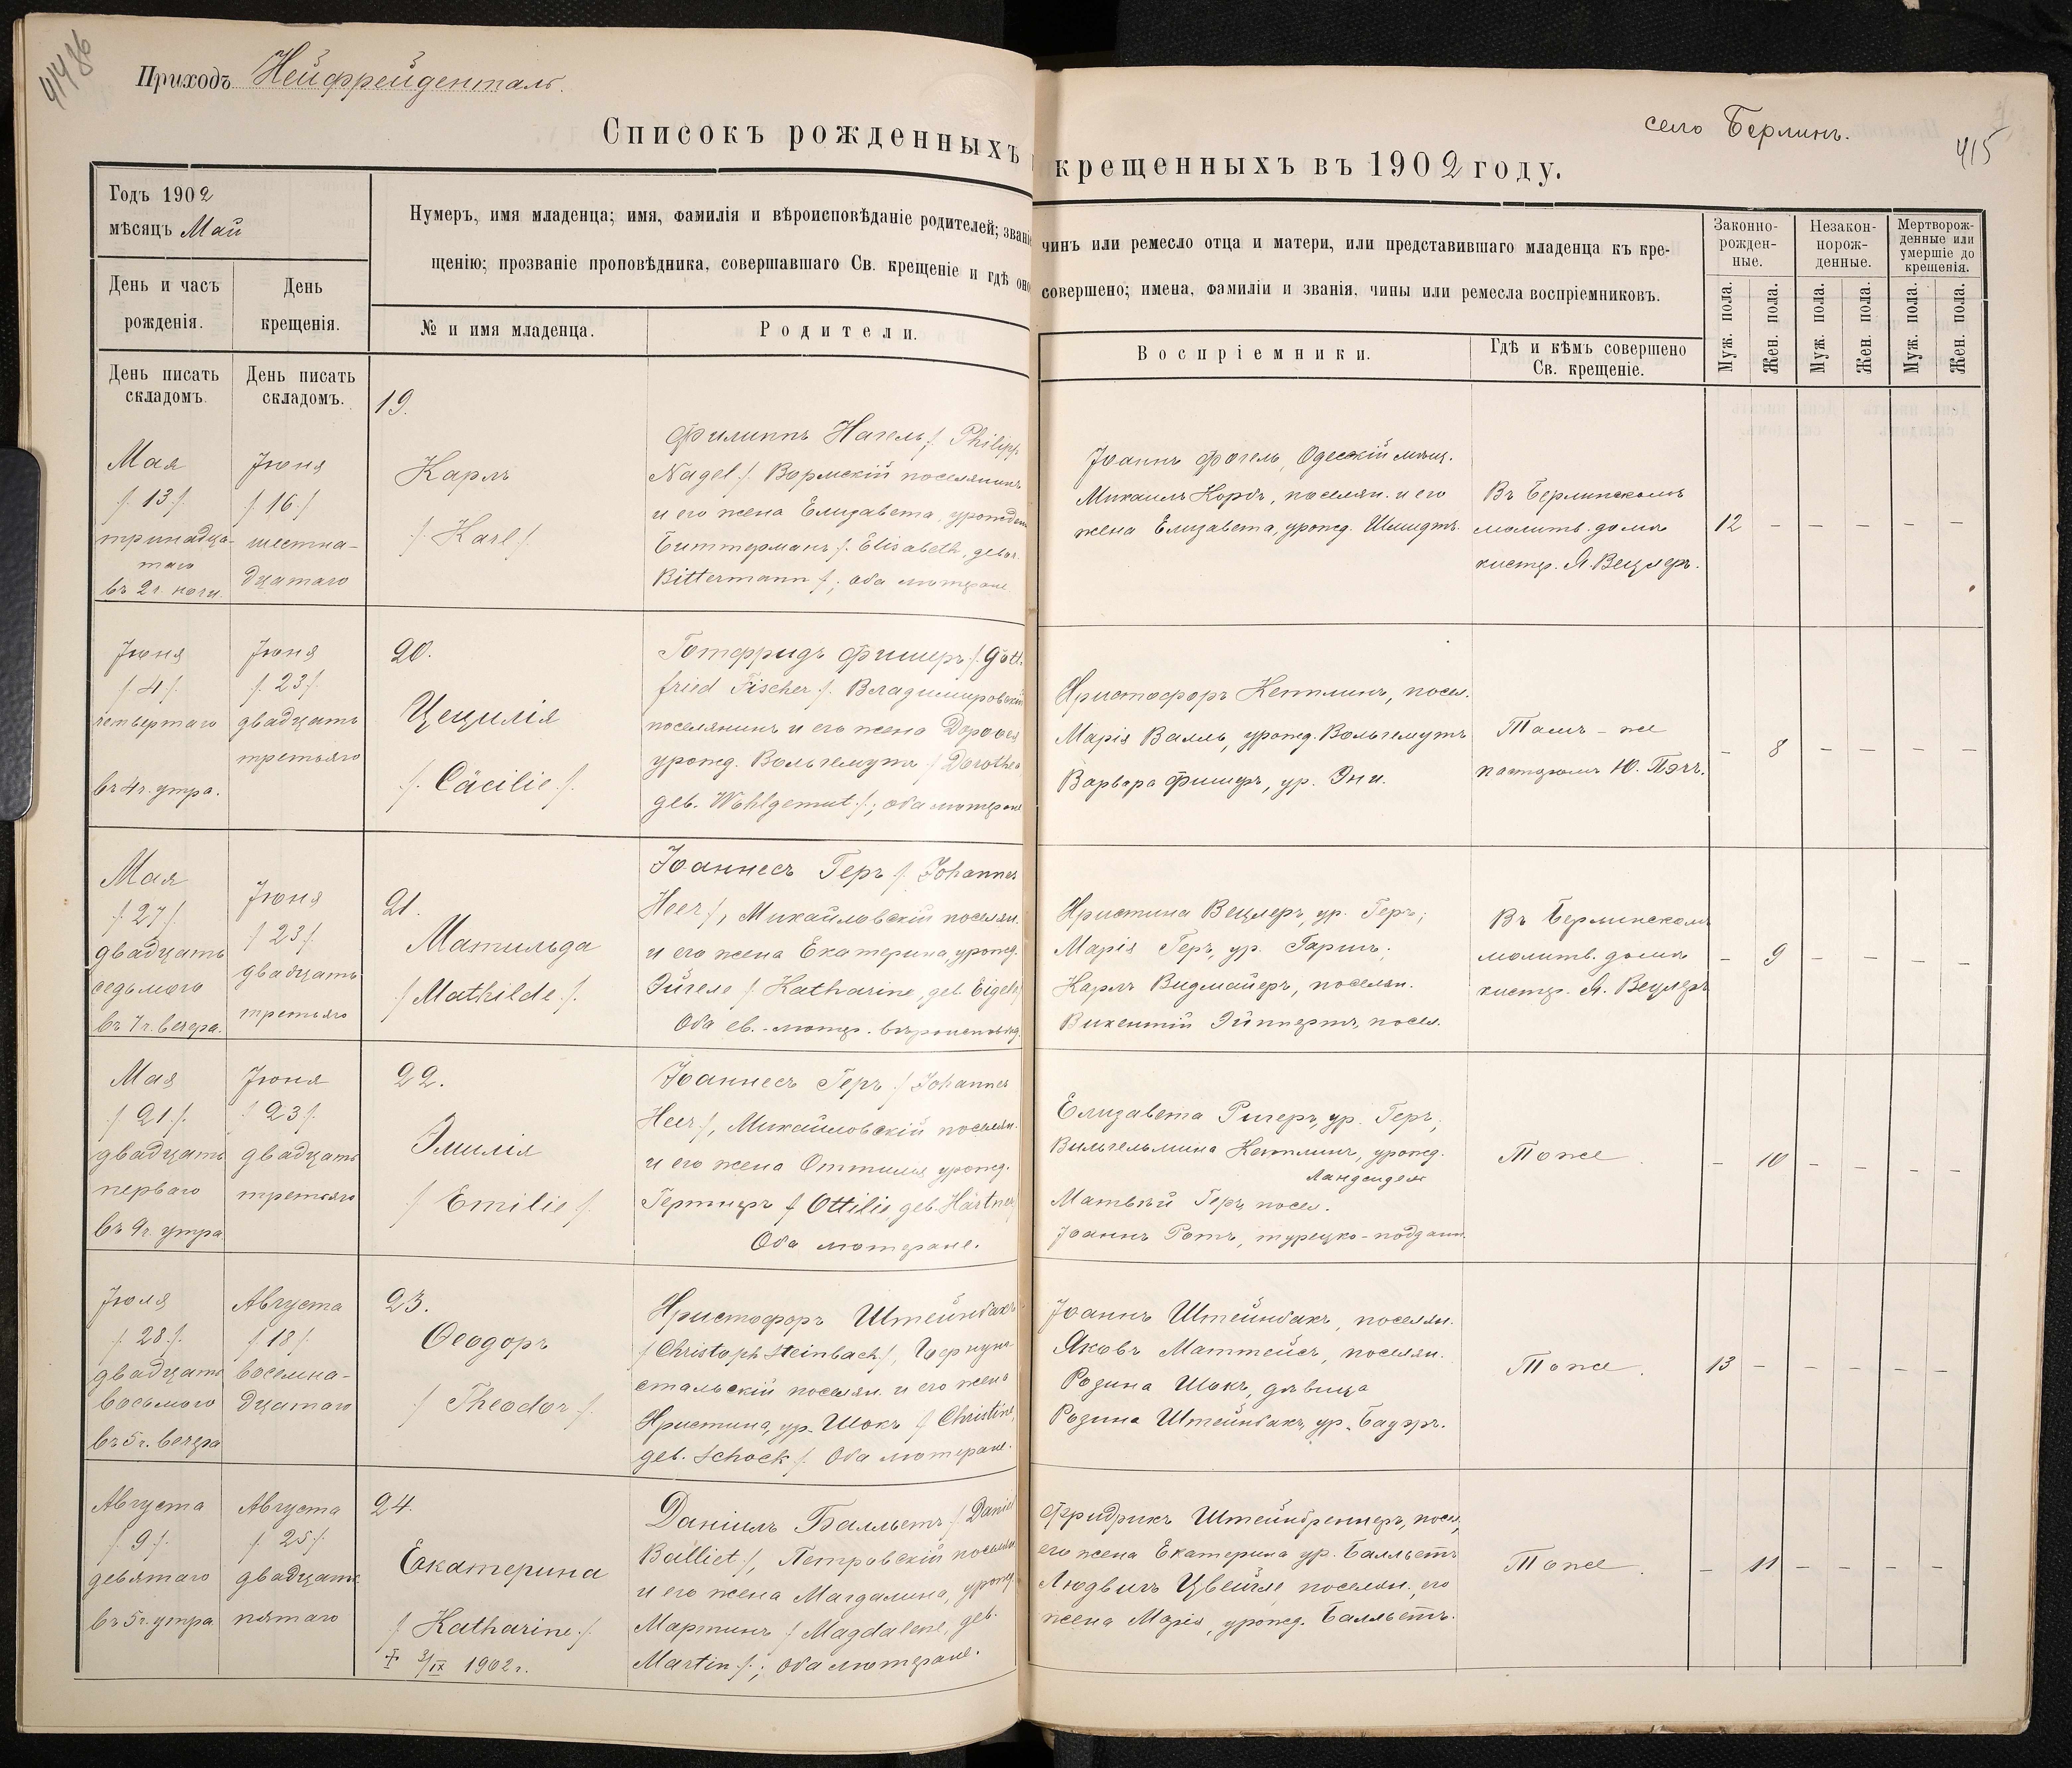 41486
Приходъ Нейфрейденталь.
село Берлинъ.
415
Списокъ рожденныхъ
крещенныхъ въ 1902 году.
Годъ 1902
мѣсяцъ Май
Нумеръ, имя младенца; имя, фамилія и вѣроисповѣданіе родителей; званіе
чинъ или ремесло отца и матери, или представившаго младенца къ кре-
щенію; прозваніе проповѣдника, совершавшаго Св. крещеніе и гдѣ оно
совершено; имена, фамиліи и званія, чины или ремесла воспріемниковъ.
Законно-
рожден-
ные.
Незакон-
норож-
денные.
Мертворож-
денные или
умершіе до
крещенія.
День и часъ
рожденія.
День
крещенія.
№ и имя младенца.
Родители.
Воспріемники.
Гдѣ и кѣмъ совершено
Св. крещеніе.
Муж. пола.
Жен. пола.
Муж. пола.
Жен. пола.
Муж. пола.
Жен. пола.
День писать
складомъ.
День писать
складомъ.
Мая
/. 13 /.
тринадца-
таго
въ 2 ч. ночи.
Іюня
/. 16 /
шестна-
дцатаго
19.
Карлъ
/. Karl /.
Филиппъ Нагель /. Philipp
Nagel /. Вормскій поселянинъ
и его жена Елизавета, урожден
Биттерманъ /. Elisabeth, gebor.
Bittermann /.; оба лютеране.
Іоаннъ Фогель, Одесскій мѣщ.
Михаилъ Корбъ, поселян. и его
жена Елизавета, урожд. Шмидтъ.
Въ Берлинскомъ
молитв. домѣ
кистр. Я. Вецлеръ.
12 – – – – –
Іюня
/. 4 /.
четвертаго
въ 4 ч. утра.
Іюня
/. 23 /.
двадцать
третьяго
20.
Цецилія
/. Cäcilie /.
Готфридъ Фишеръ /. Gott-
fried Fischer /. Владимировскій
поселянинъ и его жена Доротея
урожд. Вольгемутъ /. Dorothea
geb. Wohlgemut /.; оба лютеране
Христофоръ Кетлинъ, посел.
Марія Валль, урожд. Вольгемутъ
Варвара Фишеръ, ур. Эни.
Тамъ – же
пасторомъ Ю. Пэчъ.
– 8 – – – –
Мая
/. 27 /.
двадцать
седьмого
въ 7 ч. вечера.
Іюня
/ 23 /.
двадцать
третьяго
21.
Матильда
/ Mathilde /.
Іоаннесъ Геръ /. Johannes
Heer /, Михайловскій поселян.
и его жена Екатерина, урожд.
Эйгеле /. Katharine, geb. Eigel
Оба ев.-лютер. вѣроисповѣд.
Христина Вецлеръ, ур. Геръ;
Марія Геръ, ур. Гаригъ;
Карлъ Видмайеръ, поселян.
Викентій Эйппертъ, посел.
Въ Берлинскомъ
молитв. домѣ
кистр. Я. Вецлеръ
– 9 – – – –
Мая
/ 21 /.
двадцать
перваго
въ 9 ч. утра
Іюня
/ 23 /.
двадцать
третьяго
22.
Эмилія
/ Emilie /.
Іоаннесъ Геръ / Johannes
Heer /, Михайловскій поселян.
и его жена Оттилія урожд.
Гертнеръ / Ottilie geb. Härtner
Оба лютеране.
Елизавета Ригеръ, ур. Геръ;
Вильгельмина Кетлинъ, урожд.
Ландендель
Матвѣй Геръ, посел.
Іоаннъ Ротъ, турецко-поддан.
Тоже.
– 10 – – – –
Іюля
/. 28 /.
двадцать
восьмого
въ 5 ч. вечера
Августа
/ 18 /
восемна-
дцатаго
23.
Ѳеодоръ
/ Theodor /.
Христофоръ Штейнбахъ
/ Christoph Steinbach /,
стальскій поселян. и его жена
Христина, ур. Шокъ / Christine,
geb. Schock /. Оба лютеране.
Іоаннъ Штейнбахъ, поселян.
Яковъ Маттейсъ, поселян.
Розина Шокъ, дѣвица
Розина Штейнбахъ, ур. Бауэръ.
Тоже.
13 – – – – –
Августа
/. 9 /.
девятаго
въ 5 ч. утра
Августа
/. 25 /.
двадцать
пятаго
24.
Екатерина
/ Katharine /.
☩ 3/IX 1902 г.
Даніилъ Балльетъ / Daniel
Balliet /, Петровскій поселян
и его жена Магдалина, урожд.
Мартинъ / Magdalene, geb.
Martin /.; Оба лютеране.
Фридрихъ Штейнбреннеръ, посел,
его жена Екатерина ур. Балльетъ
Людвигъ Цвейгле, поселян., его
жена Марія, урожд. Балльетъ.
Тоже.
– 11 – – – –